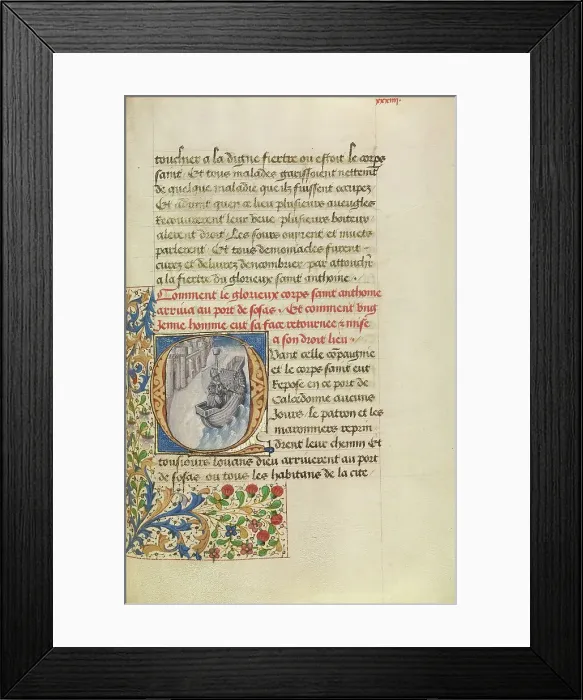 xxxiiij.
touchier a la digne fiertre ou estoit le corps
saint. Et tous malades garissoient nettemt
de quelque maladie que ilz fuissent occupez
Et aduint quen ce lieu plusieurs aueugles
Recouurerent leur veue plusieurs boiteux
alerent droit. Les sours ouyrent et muetz
parlerent. Et tous demoniacles furent
curez et deliurez dencombrier par attouchr
a la fiertre du glorieux saint anthoine.
Comment le glorieux corps saint anthoine
arriua au port de sosas. Et comment vng
Jenne homme eut sa face retournee et mise
a son droit lieu.
Quant celle compaignie
et le corps saint eut
Repose en ce port de
Calcedonne aucuns
Jours. le patron et les
maronniers reprin
drent leur chemin Et
tousiours louans dieu arriuerent au port
de sosas ou tous les habitans de la cite